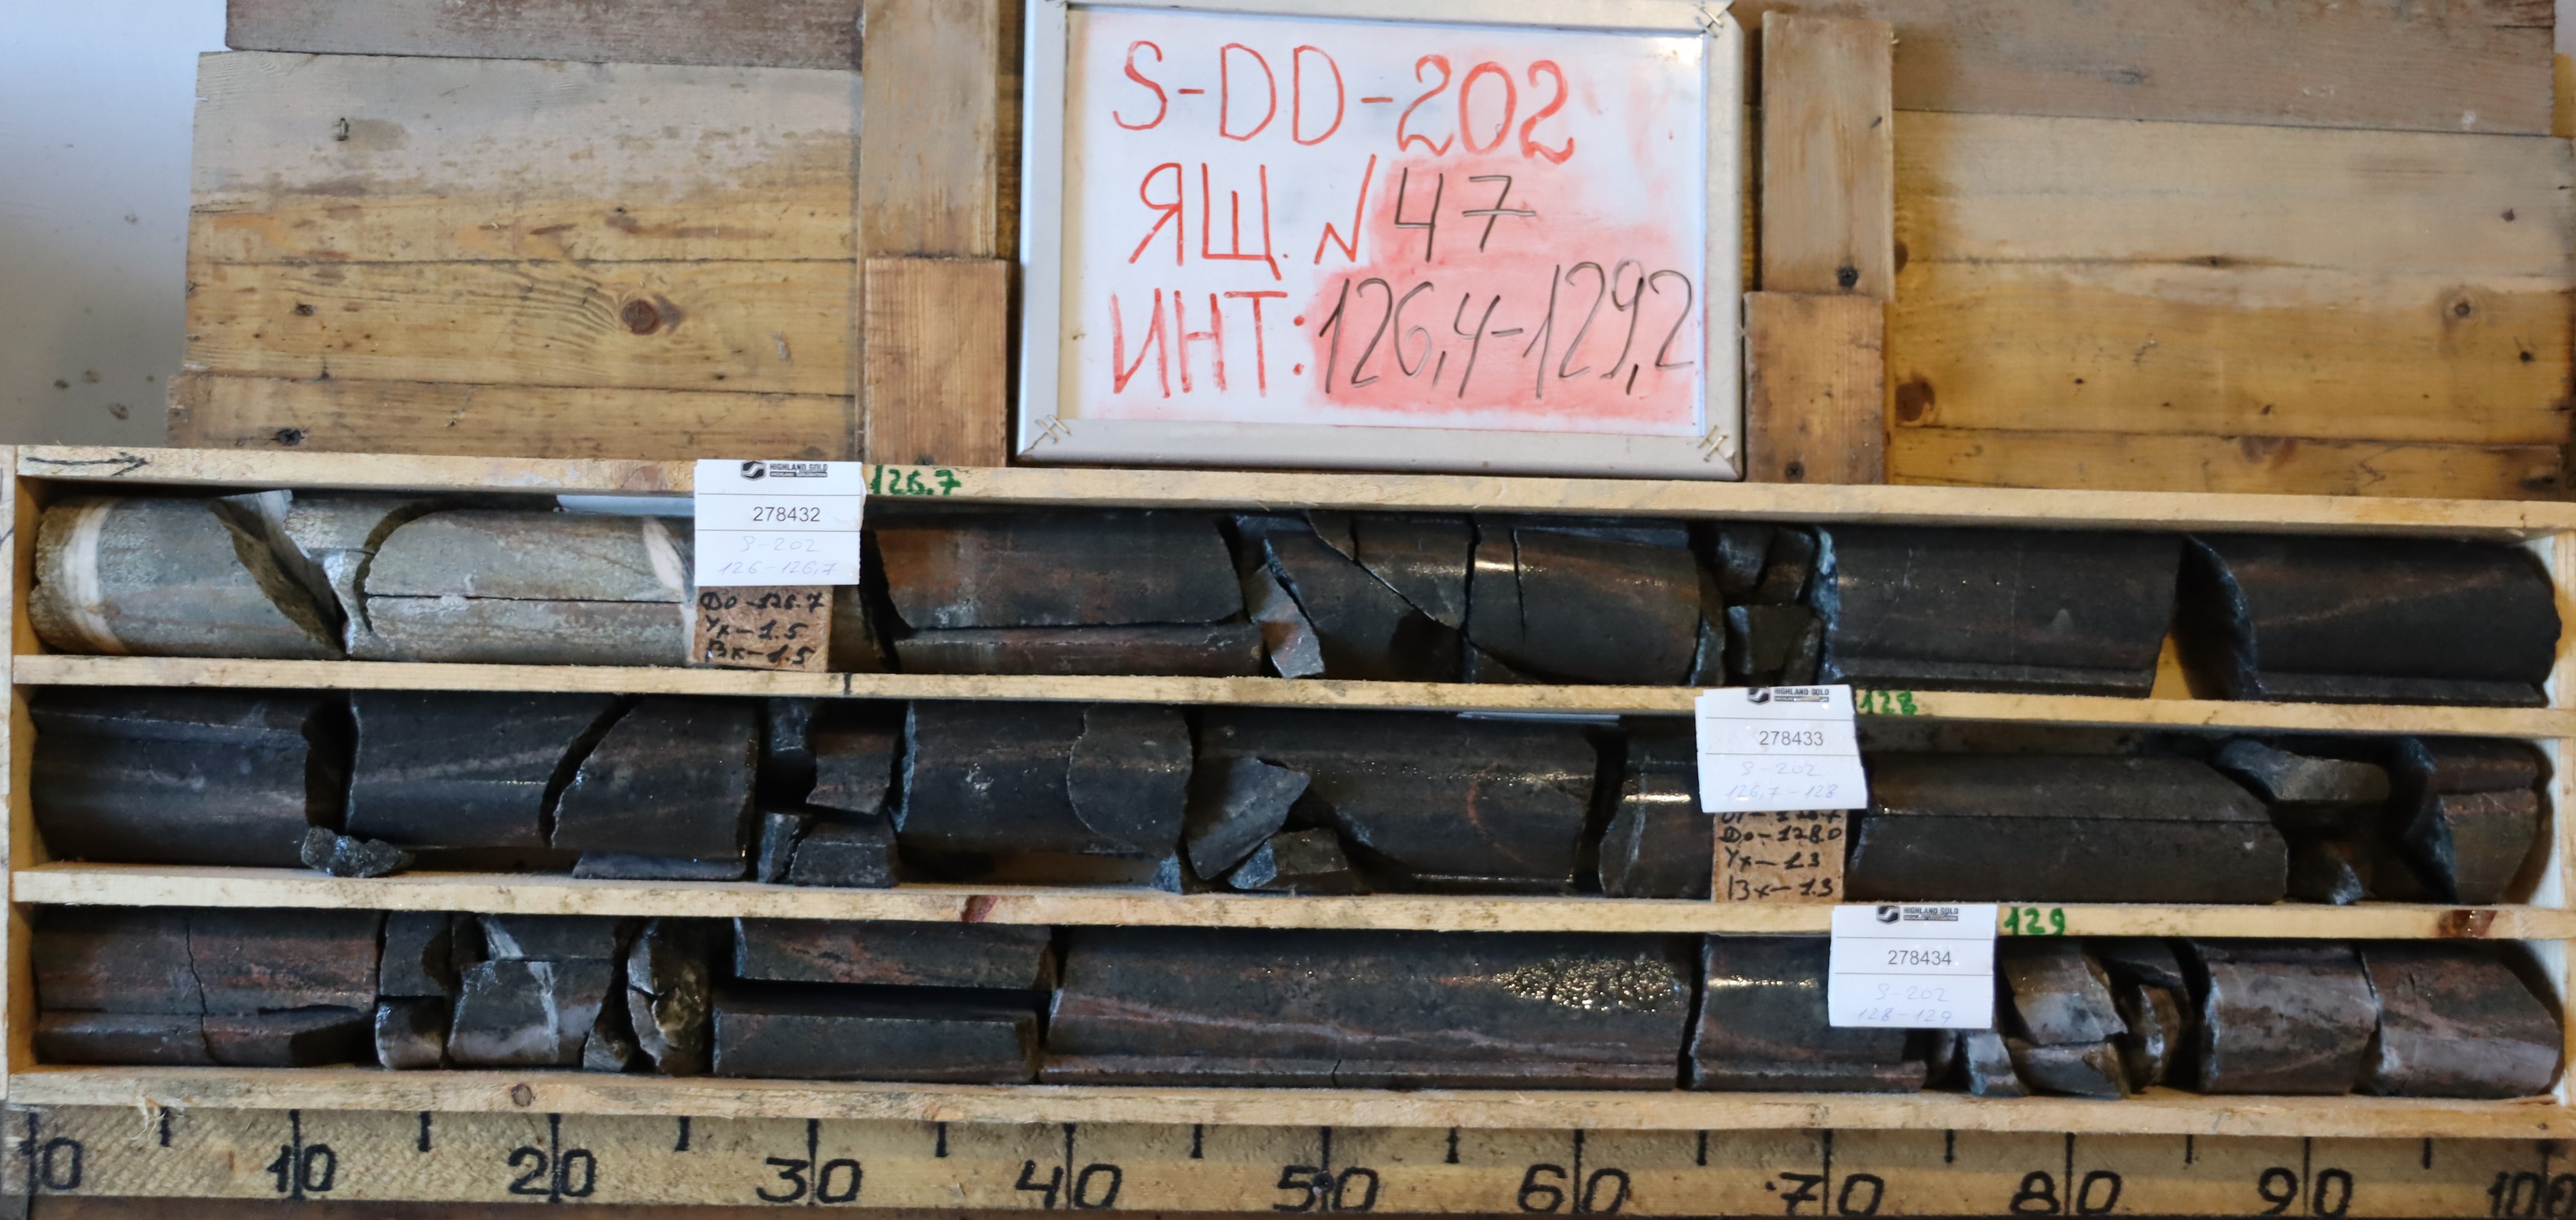 S-DD-202
ЯЩ. N 47
ИНТ: 126,4-129,2
HIGHLAND GOLD
278432
S-202
126-126,7
126.7
До-126.7
Ух-1.5
Вх-1.5
HIGHLAND GOLD
278433
S-202
126,7-128
128
До-128.0
Ух-1.3
Вх-1.3
HIGHLAND GOLD
278434
S-202
128-129
129
0 10 20 30 40 50 60 70 80 90 100